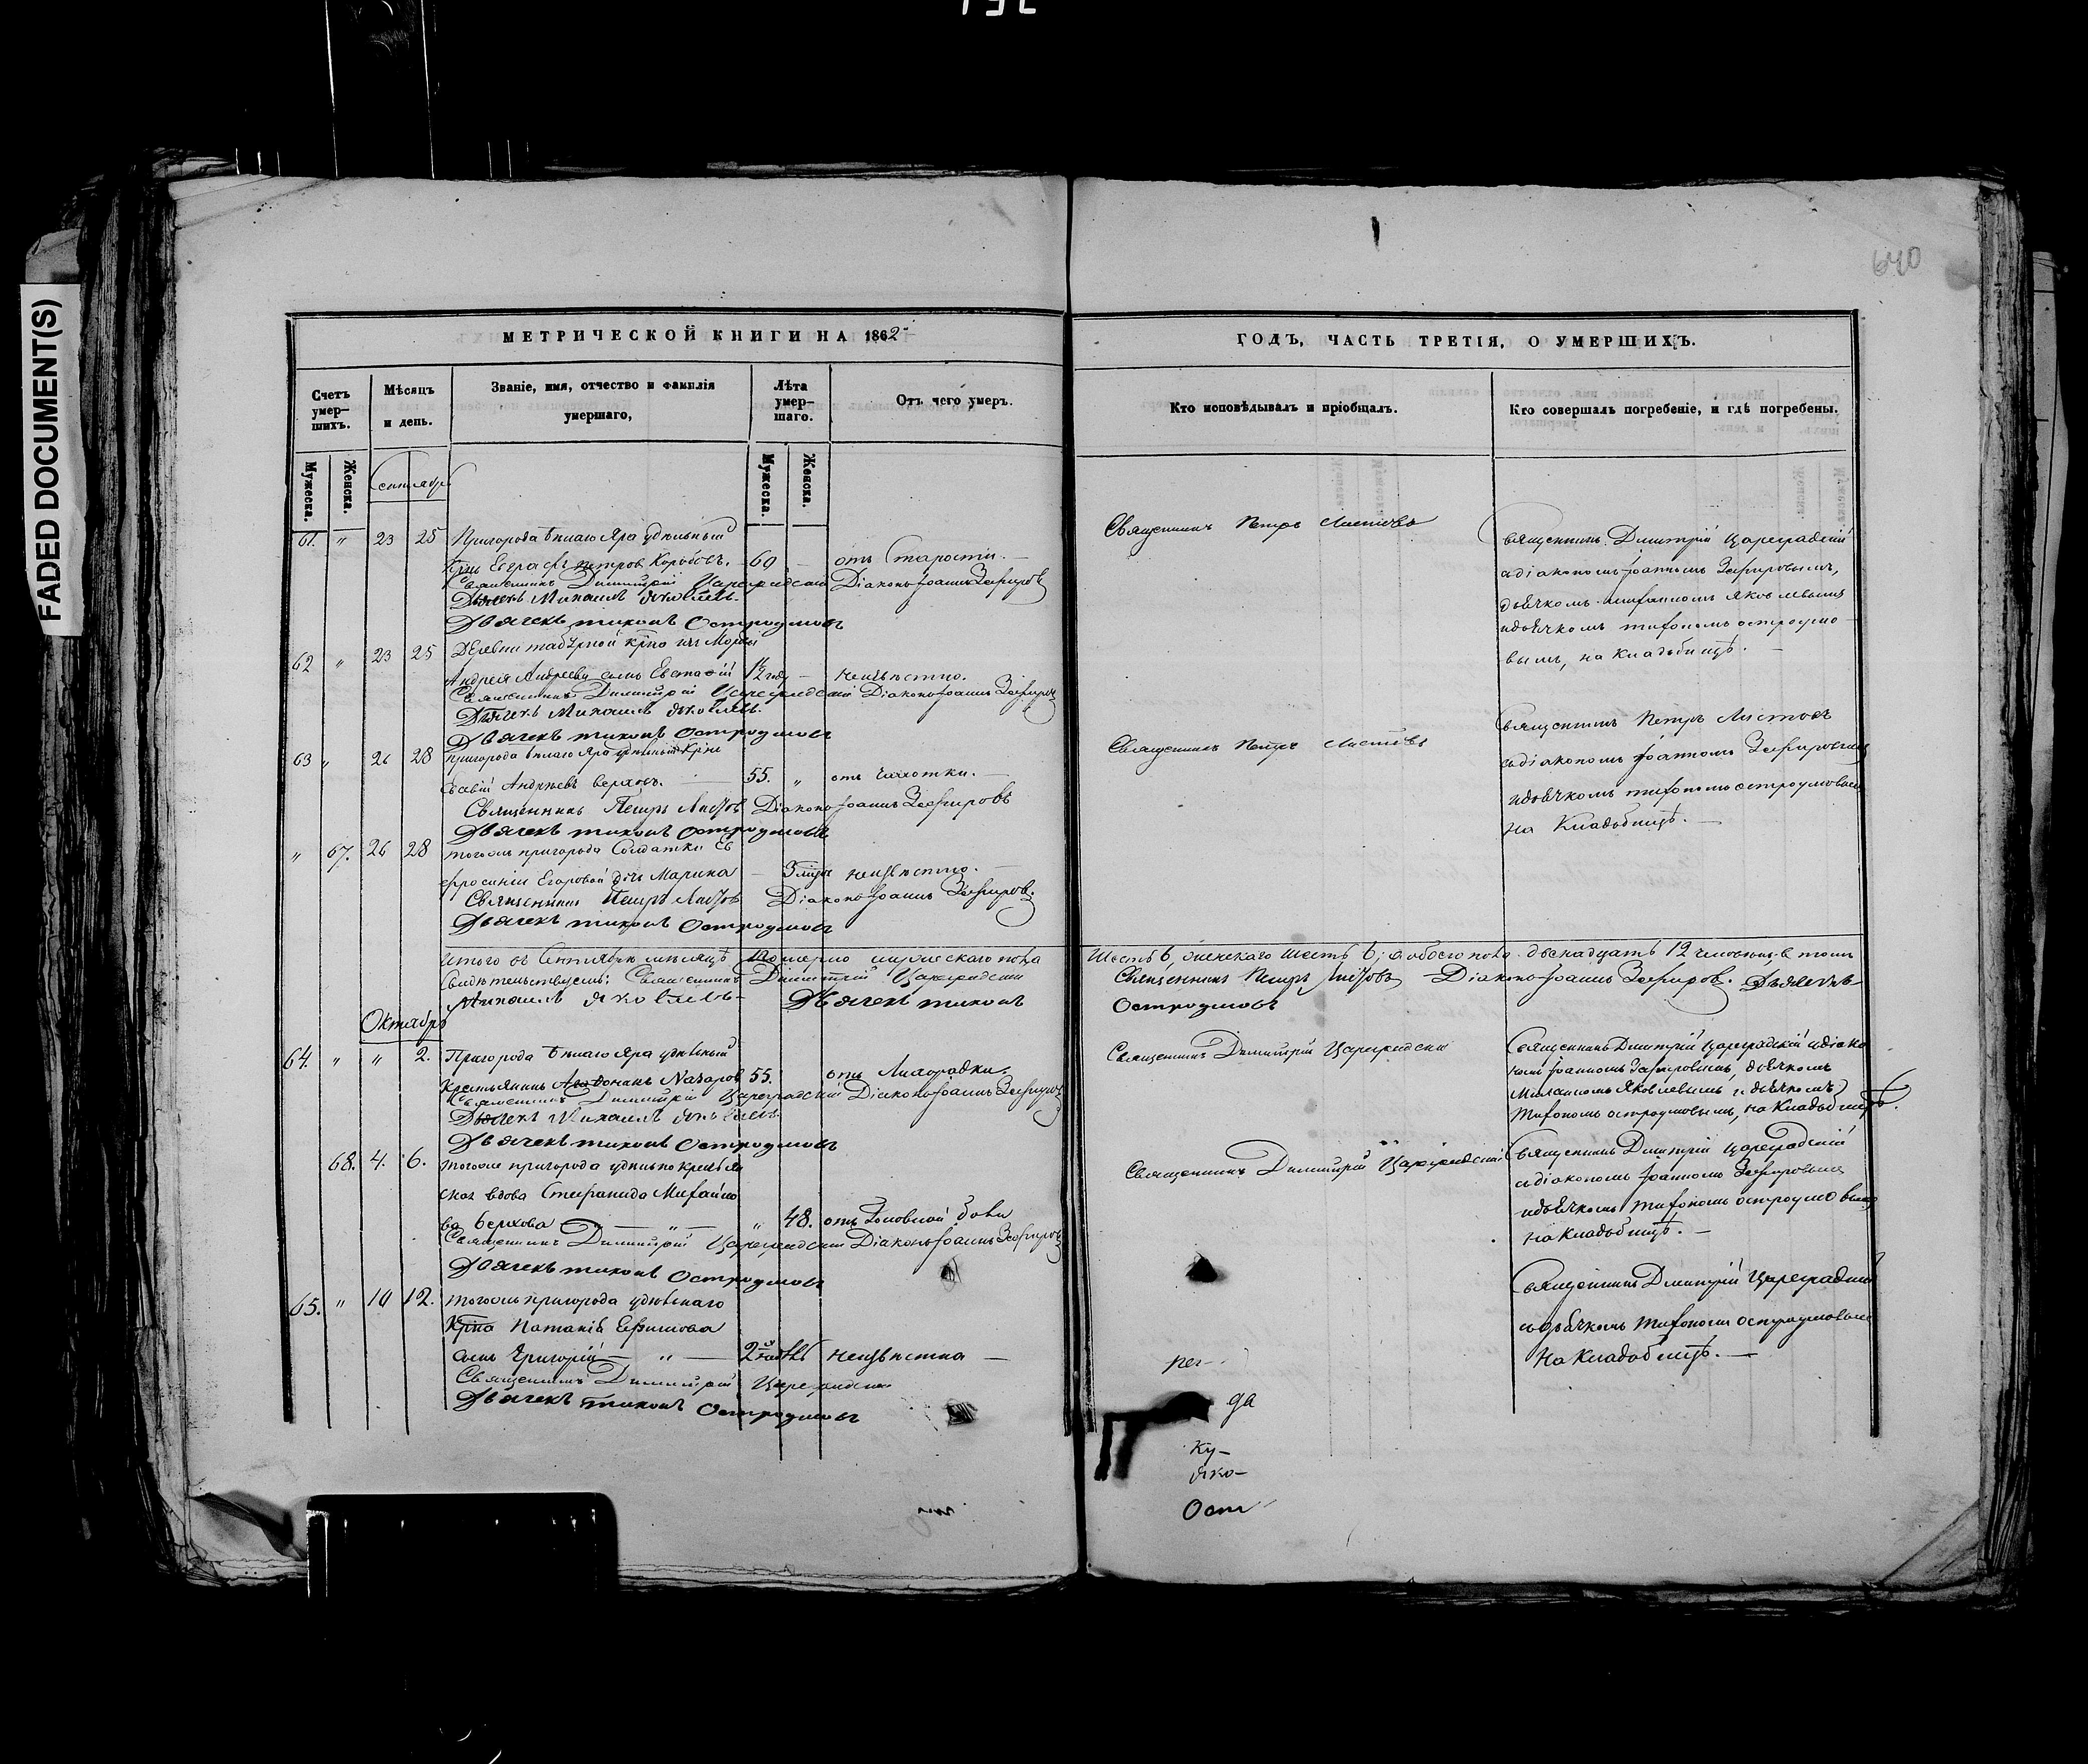 640
FADED DOCUMENT(S)
МЕТРИЧЕСКОЙ КНИГИ НА 1862
Счетъ умер-
шихъ.
Мѣсяцъ
и день.
Званіе, имя, отчество и фамилія
умершаго,
Лѣта
умер-
шаго.
Отъ чего умеръ.
Мужеска.
Женска.
Сентябрь
Мужеска.
Женска.
61. " 23 25 Пригорода Бѣлаго Яра удѣльный
Петров Коробовъ. 69 — отъ Старости. —
Священникъ Димитрій Цареградскій Діаконъ Іоаннъ Зефировъ
Дьячекъ Михаилъ Яковлевъ.
Дьячекъ Тихонъ Остроумовъ
62 " 23 25 Деревни
Андрея Андреева сынъ Евстафій 1½ год — неизвѣстно.
Священникъ Димитрій Цареградскій Діаконъ Іоаннъ Зефировъ
Дьячекъ Михаилъ Яковлевъ.
Дьячекъ Тихонъ Остроумовъ
63 " 26 28 пригорода Бѣлаго Яра удѣльный
Андреевъ 55. " отъ Чахотки. —
Священникъ Петръ Листовъ Діаконъ Іоаннъ Зефировъ
Дьячекъ Тихонъ Остроумовъ
" 67. 26 28 тогожъ пригорода Солдатки Ев
фросиніи Егоровой дочь Марина — 3 неизвѣстно. —
Священникъ Петръ Листовъ Діаконъ Іоаннъ Зефировъ.
Дьячекъ Тихонъ Остроумовъ
Итого въ Сентябрѣ мѣсяцѣ померло мужескаго пола
Свидѣтельствуемъ: Священникъ Димитрій Цареградскій
Михаилъ Яковлевъ Дьячекъ Тихонъ
Октябрь
64. " " 2. Пригорода Бѣлаго Яра удѣльный
Крестьянинъ Назаров 55. отъ Лихорадки.
Священникъ Димитрій Цареградскій Діаконъ Іоаннъ Зефировъ
Дьячекъ Михаилъ Яковлевъ
Дьячекъ Тихонъ Остроумовъ
68. 4. 6. тогоже пригорода удѣльно крестья
ская вдова Стефанида Михайло
ва Верхова — " — " 48. отъ Головной боли
Священникъ Димитрій Цареградскій Діаконъ Іоаннъ Зефировъ
Дьячекъ Тихонъ Остроумовъ
65. " 10 12. тогожъ пригорода удѣльнаго
Крна Ефимова
сынъ Григорій — " — 2 неизвѣстна —
Священникъ Димитрій Цареградскій
Дьячекъ Тихонъ Остроумовъ
ГОДЪ, ЧАСТЬ ТРЕТІЯ, О УМЕРШИХЪ.
Кто исповѣдывалъ и пріобщалъ.
Кто совершалъ погребеніе, и гдѣ погребены.
Священникъ Петръ Листовъ
Священникъ Дмитрій Цареградскій
съ діакономъ Іоанномъ Зефировымъ,
дьячкомъ Михаиломъ Яковлевымъ
и дьячкомъ Тихономъ Остроумо
вымъ, на Кладбищѣ. —
Священникъ Петръ Листовъ
Священникъ Петръ Листовъ
съ діакономъ Іоанномъ Зефировымъ
и дьячкомъ Тихономъ Остроумовымъ
На Кладбищѣ. —
Шесть 6, женскаго шесть 6, а обоего пола двенадцать 12 человекъ, в томъ
Священникъ Петръ Листовъ Діаконъ Іоаннъ Зефировъ. Дьячекъ
Остроумовъ
Священникъ Димитрій Цареградскій
Священникъ Дмитрій Цареградскій и діако
номъ Іоанномъ Зефировымъ, дьячкомъ
Михаиломъ Яковлевымъ и дьячкомъ
Тихономъ Остроумовымъ, на Кладбищѣ.
Священникъ Димитрій Цареградскій
Священникъ Дмитрій Цареградскій
съ діакономъ Іоанномъ Зефировымъ
и дьячкомъ Тихономъ Остроумовымъ
на Кладбищѣ. —
Священникъ Дмитрій Цареградскій
и дьячкомъ Тихономъ Остроумовымъ
На Кладбищѣ. —
рег
да
Ку-
Яко-
Ост